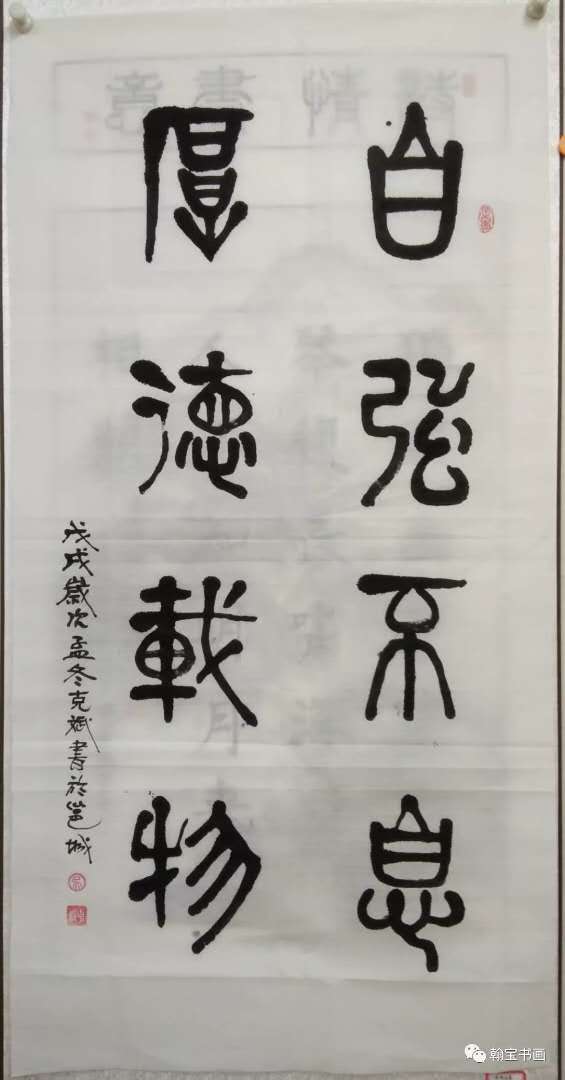 自强不息
厚德載物
戊戌歲次孟冬克斌書於邕城
翰宝书画